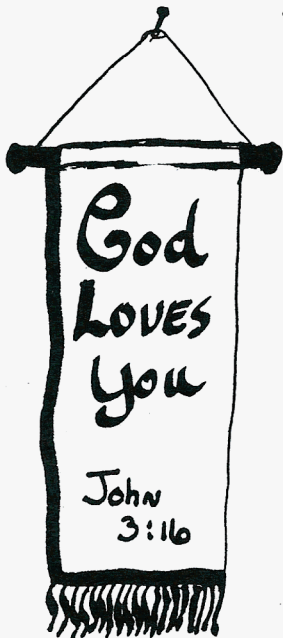 God
Loves
You
John
3:16